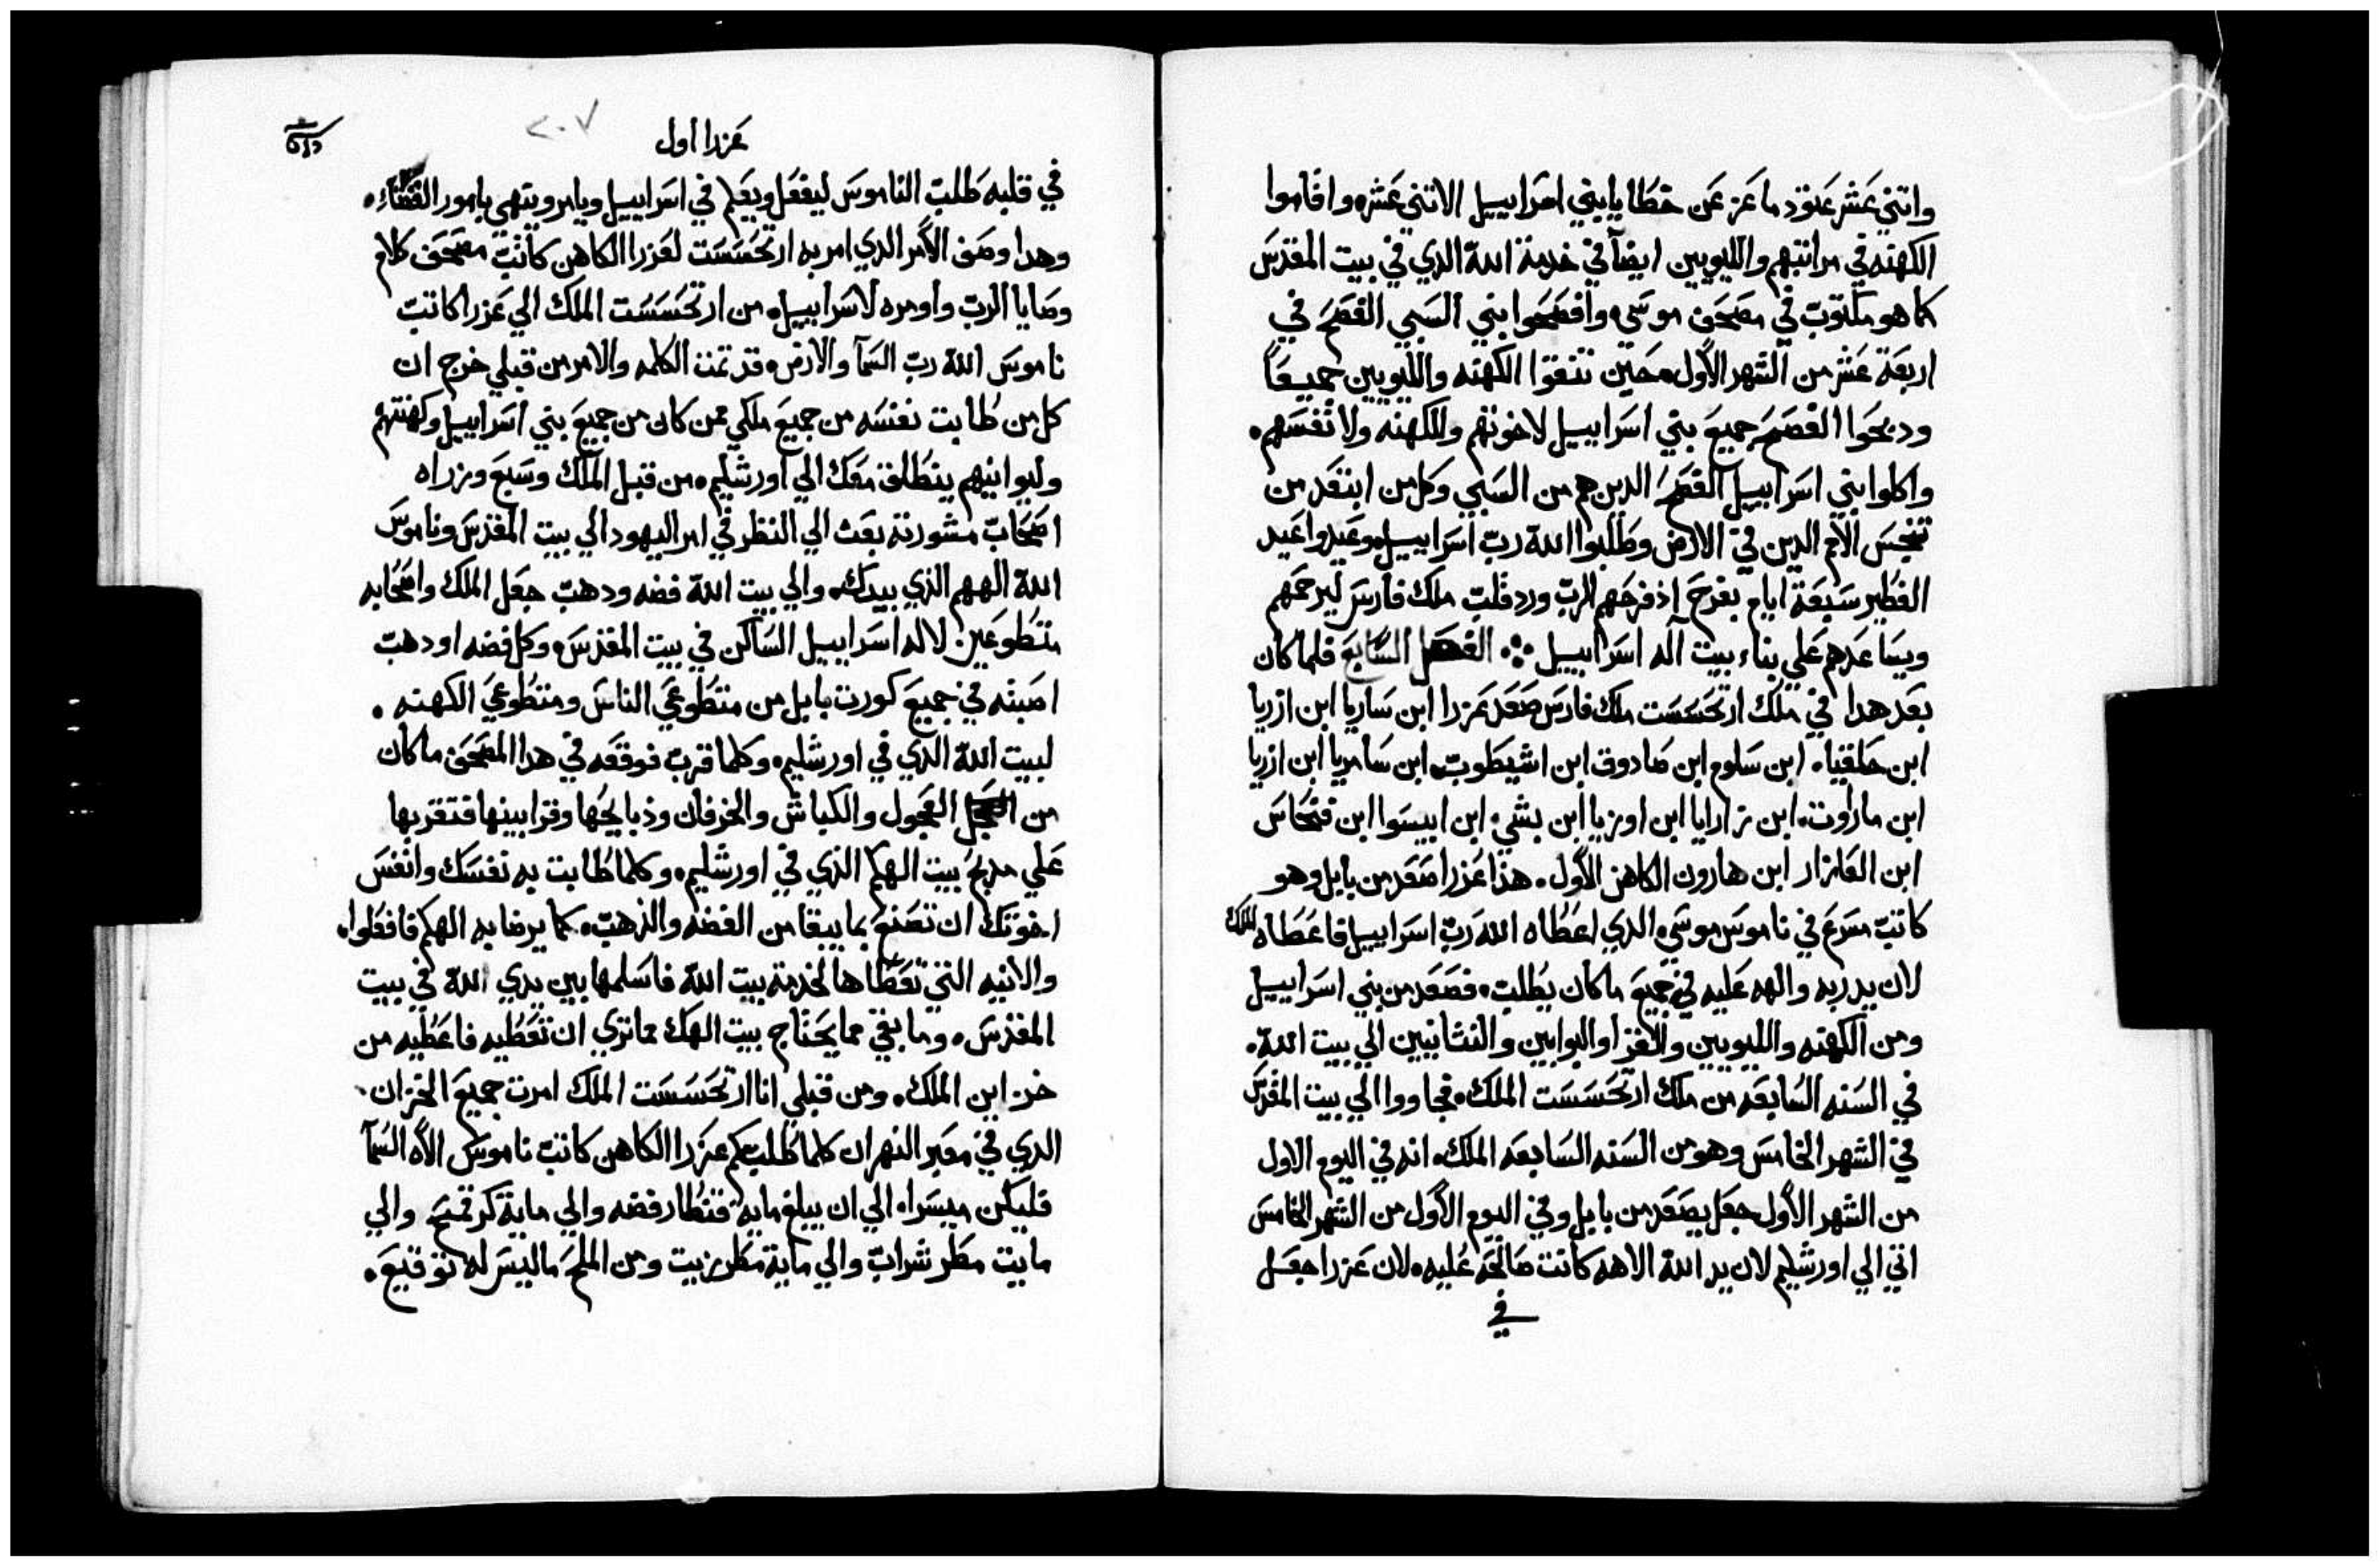 واتني عشر عتود ماعز عن خطايا بني اسراييل الاتني عشره واقاموا
الكهنه في مراتبهم والليويين ايضاً في خدمة الله الدي في بيت المقدس
كما هو مكتوب في مصحف موسي، وافصحوا بني السبي الفصح في
اربعة عشر من الشهر الاول، حين تنقوا الكهنه والليويين جميعاً
ودبحوا الفصح جميع بني اسراييل لاخوتهم وللكهنه ولانفسهم،
واكلوا بني اسراييل الفصح الدين هم من السبي وكل من ابتعد من
تنجس الامم الدين في الارض وطلبوا الله رب اسراييل، وعيدوا عيد
الفطير سبعة ايام بفرح اذ فرحهم الرب ورد قلب ملك فارس ليرحمهم
ويساعدهم علي بناء بيت اله اسراييل ܀ الفصل السابع فلما كان
بعد هدا في ملك ارتحسست ملك فارس صعد عزرا ابن ساريا ابن ازريا
ابن حلقيا، ابن سلوم ابن صادوق ابن اشيطوب، ابن سامريا ابن ازريا
ابن ماراوت، ابن زارايا ابن اوزيا ابن بشي، ابن ابيسوا ابن فنحاس
ابن العازار ابن هارون الكاهن الاول، هذا عزرا صعد من بابل وهو
كاتب مسرع في ناموس موسي، الدي اعطاه الله رب اسراييل فاعطاه الملك
لان يد ربه والهه عليه في جميع ماكان يطلب، فصعد من بني اسراييل
ومن الكهنه والليويين والقرا والبوابين والنثانيين الي بيت الله،
في السنه السابعه من ملك ارتحسست الملك، فجاووا الي بيت المقدس
في الشهر الخامس وهو من السنه السابعه الملك، انه في اليوم الاول
من الشهر الاول جعل يصعد من بابل وفي اليوم الاول من الشهر الخامس
اتي الي اورشليم لان يد الله الاهه كانت صالحه عليه، لان عزرا جعل
في
عزرا اول
٢٠٧
في قلبه طلب الناموس ليفعل ويعلم في اسراييل ويامر وينهي بامور القضاء،
وهدا وصف الامر الدي امر به ارتحسست لعزرا الكاهن كاتب مصحف كلام
وصايا الرب واومره لاسراييل، من ارتحسست الملك الي عزرا كاتب
ناموس الله رب السمآ والارض، قد تمت الكلمه والامر من قبلي خرج ان
كل من طابت نفسه من جميع ملكي ممن كان من جميع بني اسراييل وكهنتهم
وليوانيهم ينطلق معك الي اورشليم، من قبل الملك وسبع وزراه
اصحاب مشورته بعث الي النظر في امر اليهود الي بيت المقدس وناموس
الله الههم الذي بيدك، والي بيت الله فضه ودهب جعل الملك واصحابه
متطوعين لاله اسراييل الساكن في بيت المقدس، وكل فضه او دهب
اصبته في جميع كورت بابل من متطوعي الناس ومتطوعي الكهنه،
لبيت الله الدي في اورشليم، وكلما قرب فوقعه في هدا المصحف ماكان
من العجل العجول والكباش والخرفان وذبايحها وقرابينها فتقربها
علي مدبح بيت الهكم الذي في اورشليم، وكلما طابت به نفسك وانفس
اخوتك ان تصنع بما يبقا من الفضه والذهب، كما يرضا به الهكم فافعلوا،
والانيه التي تعطاها لخدمة بيت الله فاسلمها بين يدي الله في بيت
المقدس، وما بقي مما يحتاج بيت الهك مما تري ان تعطيه فاعطيه من
خزاين الملك، ومن قبلي انا ارتحسست الملك امرت جميع الخزان،
الدي في معبر النهر ان كلما طلب منكم عزرا الكاهن كاتب ناموس الاه السمآ
فليكن ميسراه الي ان يبلغ مايه قنطار فضه والي ماية كر قمح والي
مايت مطر شراب والي ماية مطر زيت ومن الملح ماليس له توقيع،